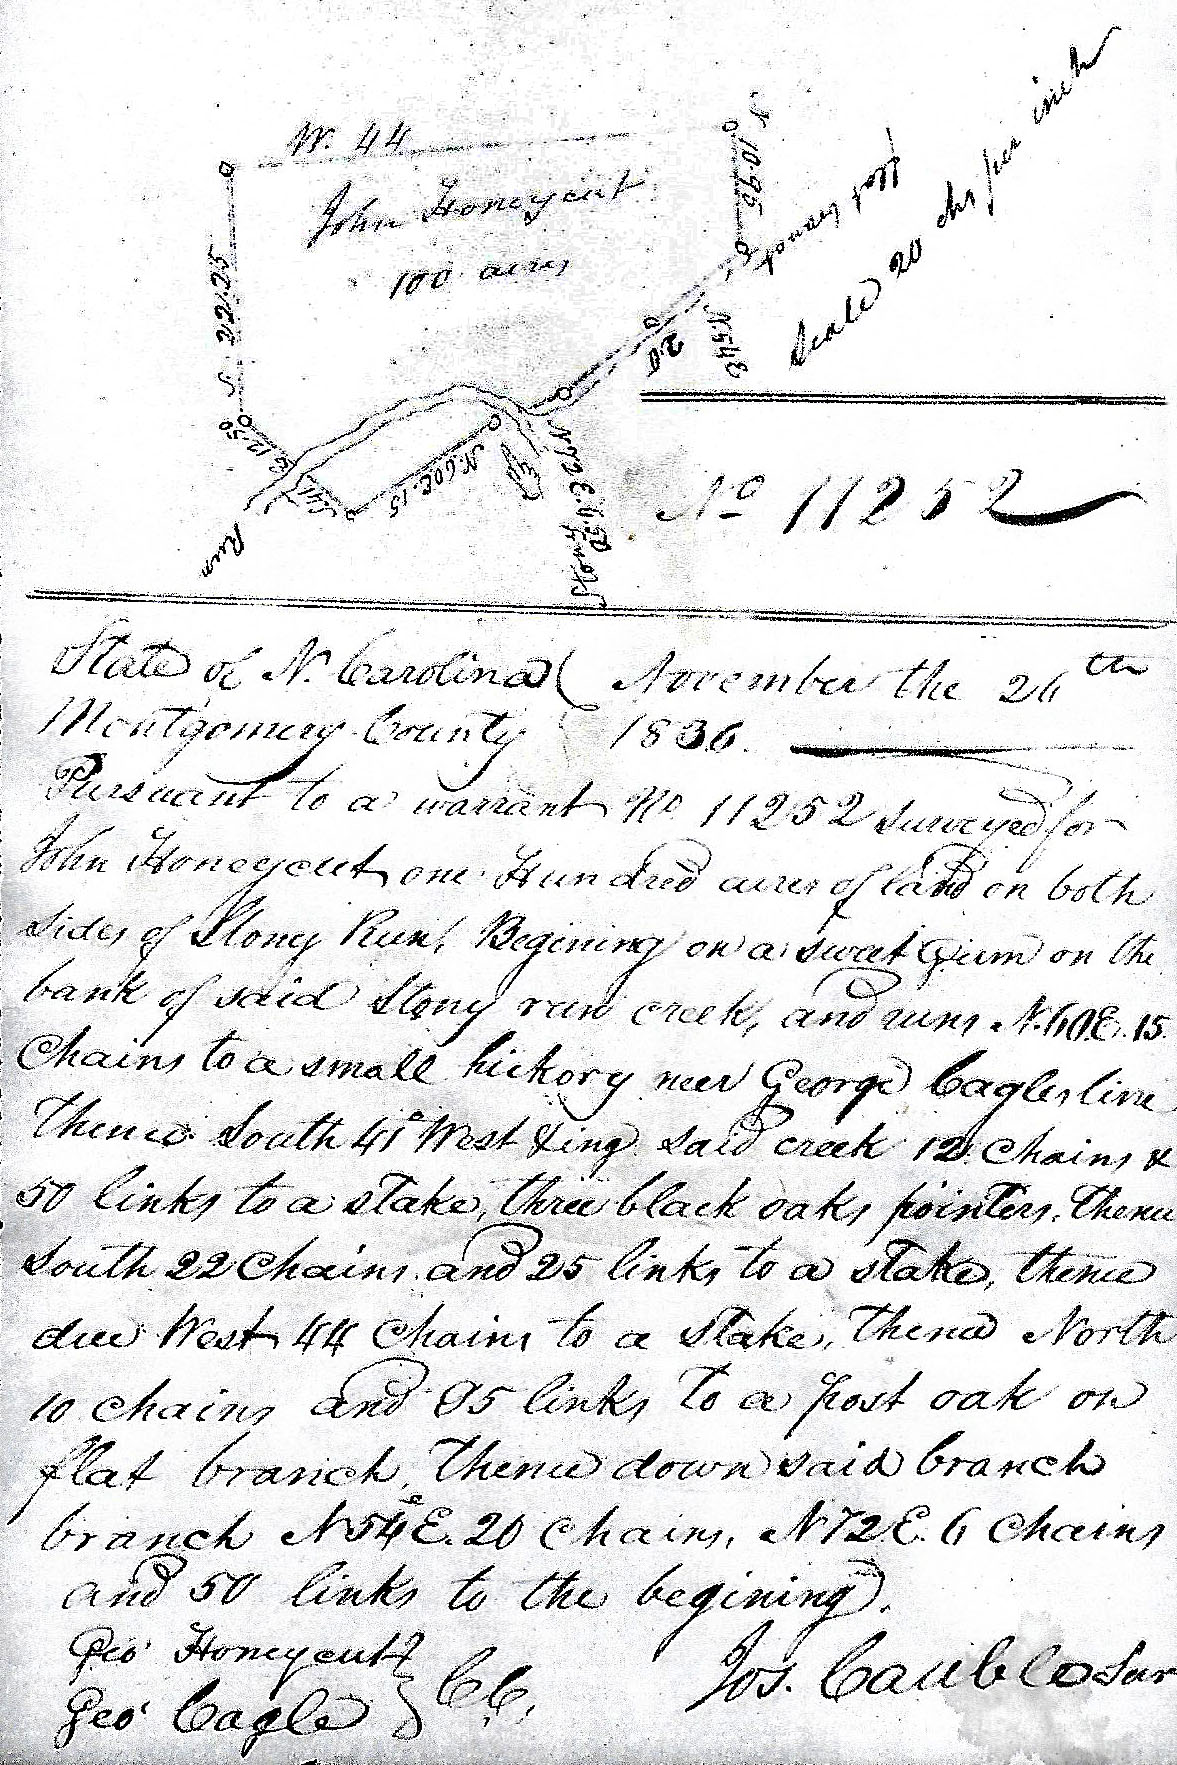 W. 44
John Honeycut
100 acres
S 22.25
12.50
N. 60 E. 15
N 72 E. 6.50
Stony
Run
20
N 54 E
N 10.95
Scale 20 chs per inch
No 11252
State of N. Carolina ( November the 26th
Montgomery County 1836.
Pursuant to a warrant No 11252 surveyed for
John Honeycut one Hundred acres of land on both
sides of Stoney Run, Begining on a sweet Gum on the
bank of said Stony run creek, and runs N. 60 E. 15.
Chains to a small hickory neer George Cagles line
Thence South 41° West Xing said creek 12 Chains &
50 links to a stake, three black oaks pointers, thence
South 22 Chains and 25 links to a stake, thence
due West 44 Chains to a Stake, Thence North
10 chains and 95 links to a post oak on
flat branch, Thence down said branch
branch N 54° E. 20 Chains, N 72 E. 6 Chains
and 50 links to the begining.
Geo Honeycut }
Geo Cagle } C.C.
Jos. Cauble Sur